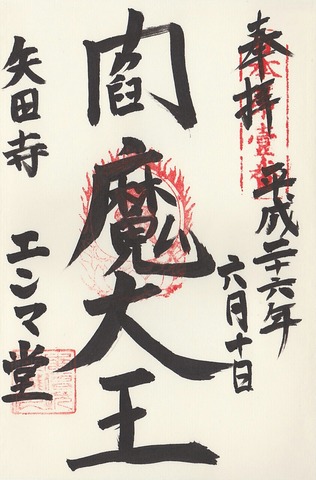 奉拝
平成二十六年
六月十日
閻魔大王
矢田寺
エンマ堂